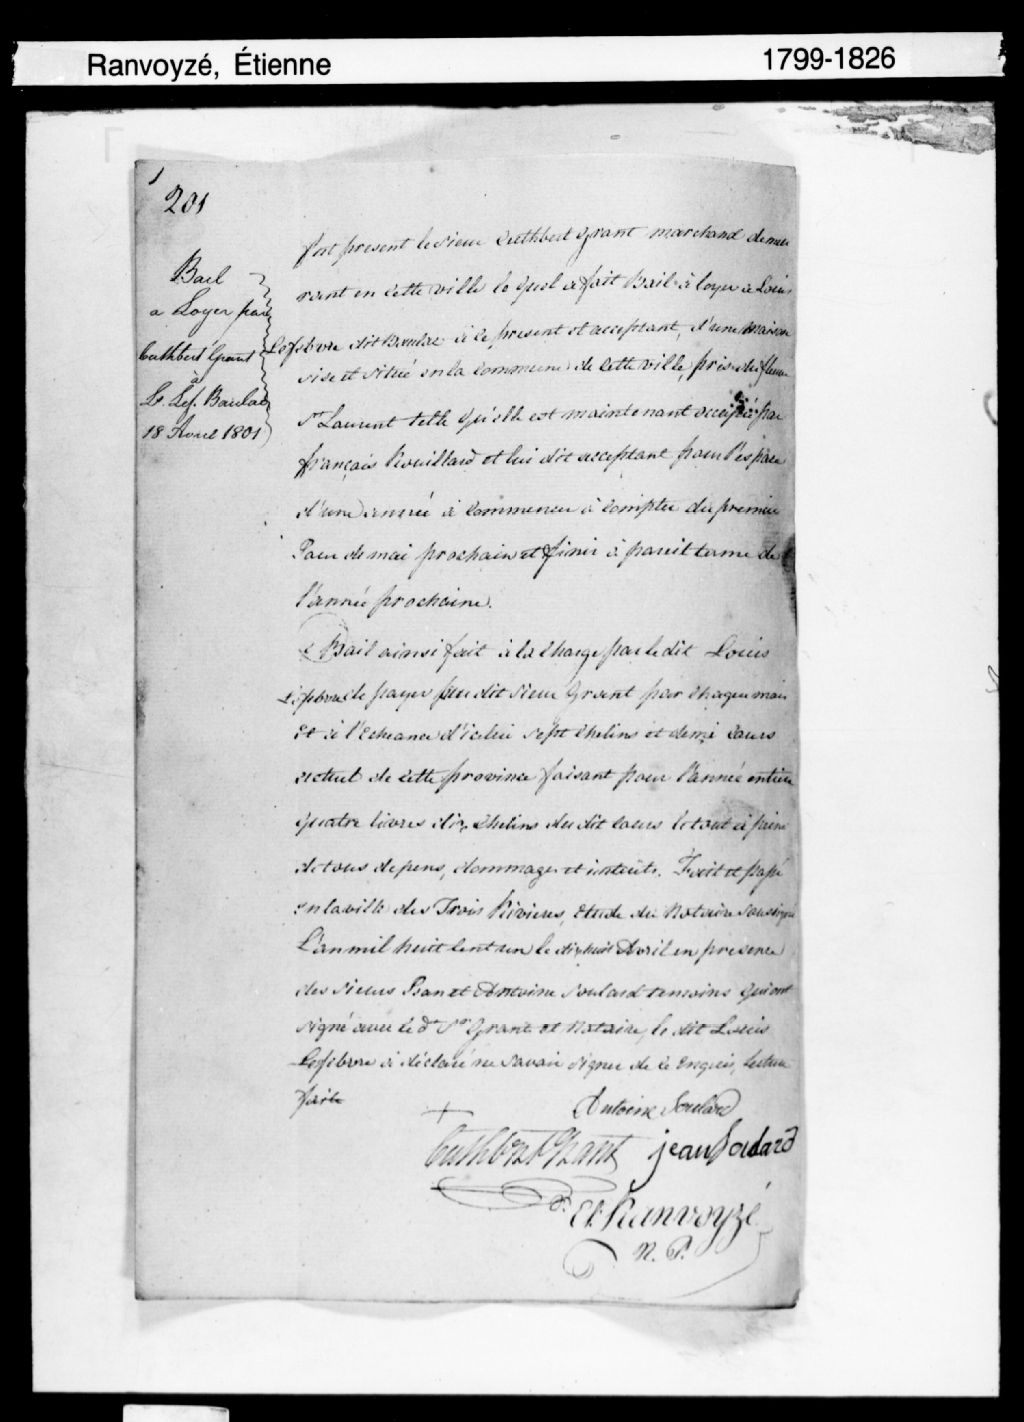 Ranvoyzé, Étienne
1799-1826
201
Bail
a Loyer par
Cuthbert Grant
à
Ls. Lef. Baulac
18 Avril 1801
fut present le sieur Cuthbert Grant marchand demeu
rant en cette ville le quel a fait Bail à loyer à Louis
Lefebvre dit Baulac à ce present et acceptant, d'une maison
sise et situé en la commune de cette ville, près du fleuve
St Laurent telle qu'elle est maintenant occupée par
françois Rouillard et lui dit acceptant pour l'espace
d'une année à commencer à compter du premier
Jour de mai prochain et finir à pareil terme de
l'année prochaine.
Bail ainsi fait à la charge par le dit Louis
Lefebvre de payer au dit sieur Grant par chaque mois
Et à l'Echeance d'icelui sept chelins et demi cours
actuel de cette province faisant pour l'année entiere
quatre livres dix chelins du dit cours le tout à peine
de tous depens, dommages et interêts. Fait et passé
en la ville des Trois Rivieres, étude du Notaire soussigné
L'an mil huit cent un le dixhuit Avril en presence
des sieurs Jean et Antoine Soulard temoins qui ont
signé avec le dt Sr Grant et Notaire, le dit Louis
Lefebvre a déclaré ne savoir signer de ce Enquis, lecture
faite
Antoine Soulard
+
Cuthbert Grant jean Soulard
Et. Ranvoyzé
N. P.